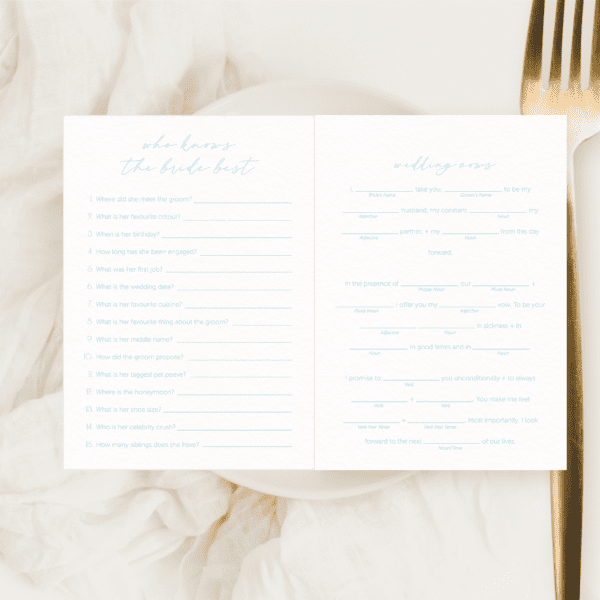 who knows
the bride best
1. Where did she meet the groom?
2. What is her favourite colour?
3. When is her birthday?
4. How long has she been engaged?
5. What was her first job?
6. What is the wedding date?
7. What is her favourite cuisine?
8. What is her favourite thing about the groom?
9. What is her middle name?
10. How did the groom propose?
11. What is her biggest pet peeve?
12. Where is the honeymoon?
13. What is her shoe size?
14. Who is her celebrity crush?
15. How many siblings does she have?
wedding vows
I, take you to be my
Bride's Name Groom's Name
husband, my constant my
Adjective Noun
partner, + my from this day
Adjective Noun
forward.
In the presence of our +
Plural Noun Plural Noun
I offer you my vow. To be your
Plural Noun Adjective
+ in sickness + in
Adjective Noun
in good times and in
Noun Noun
I promise to you unconditionally + to always
Verb
+ You make me feel
Verb Verb
+ Most importantly, I look
forward to the next of our lives.
Period Time